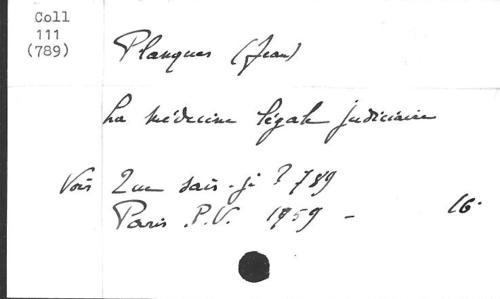 Coll
111
(789)
Planques (Jean)
La médecine légale judiciaire
Voir Que sais-je ? 789
Paris. P.U. 1959 - 16.